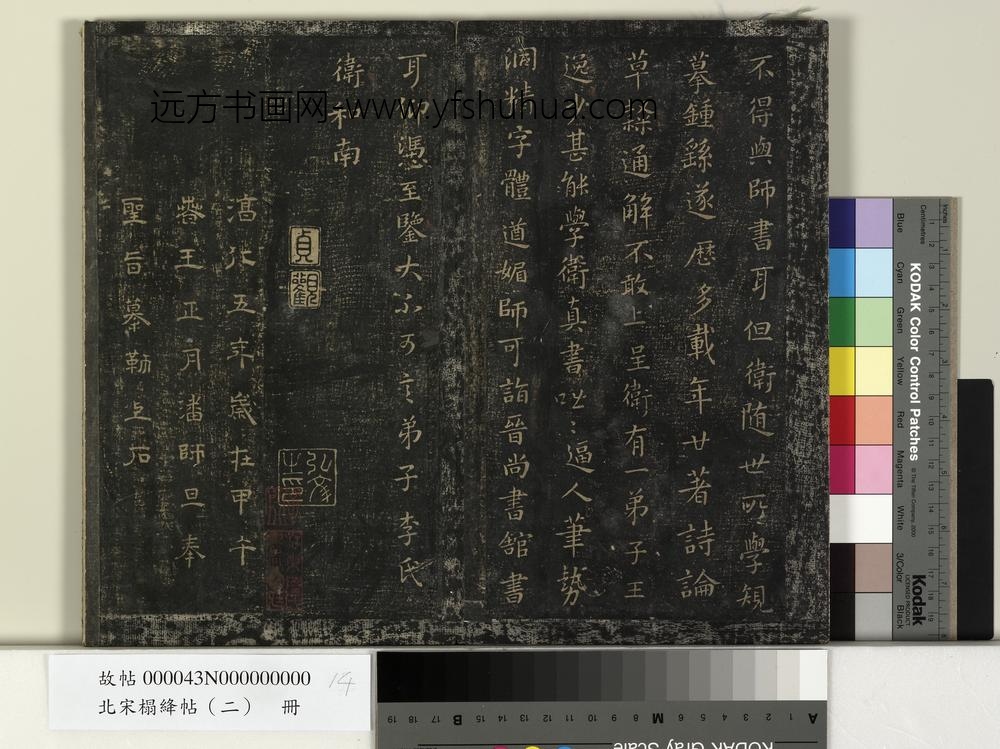 不得與師書耳但衛随世所學規
摹鍾繇遂歷多載年廿著詩論
草隸通解不敢上呈衛有一弟子王
逸少甚能學衛真書咄〻逼人筆勢
洞精字體遒媚師可詣晉尚書舘書
耳仰憑至鑒大不可言弟子李氏
衛和南
貞觀
弘文之印
淳化五年歲在甲午
春王正月潘師旦奉
聖旨摹勒上石
远方书画网-www.yfshuhua.com
故帖000043N000000000 14
北宋榻絳帖（二） 冊
Inches
Centimetres
KODAK Color Control Patches
© The Tiffen Company, 2000
Kodak
LICENSED PRODUCT
Blue
Cyan
Green
Yellow
Red
Magenta
White
3/Color
Black
KODAK Gray Scale
A 1 2 3 4 5 6 M 8 9 10 11 12 13 14 15 B 17 18 19